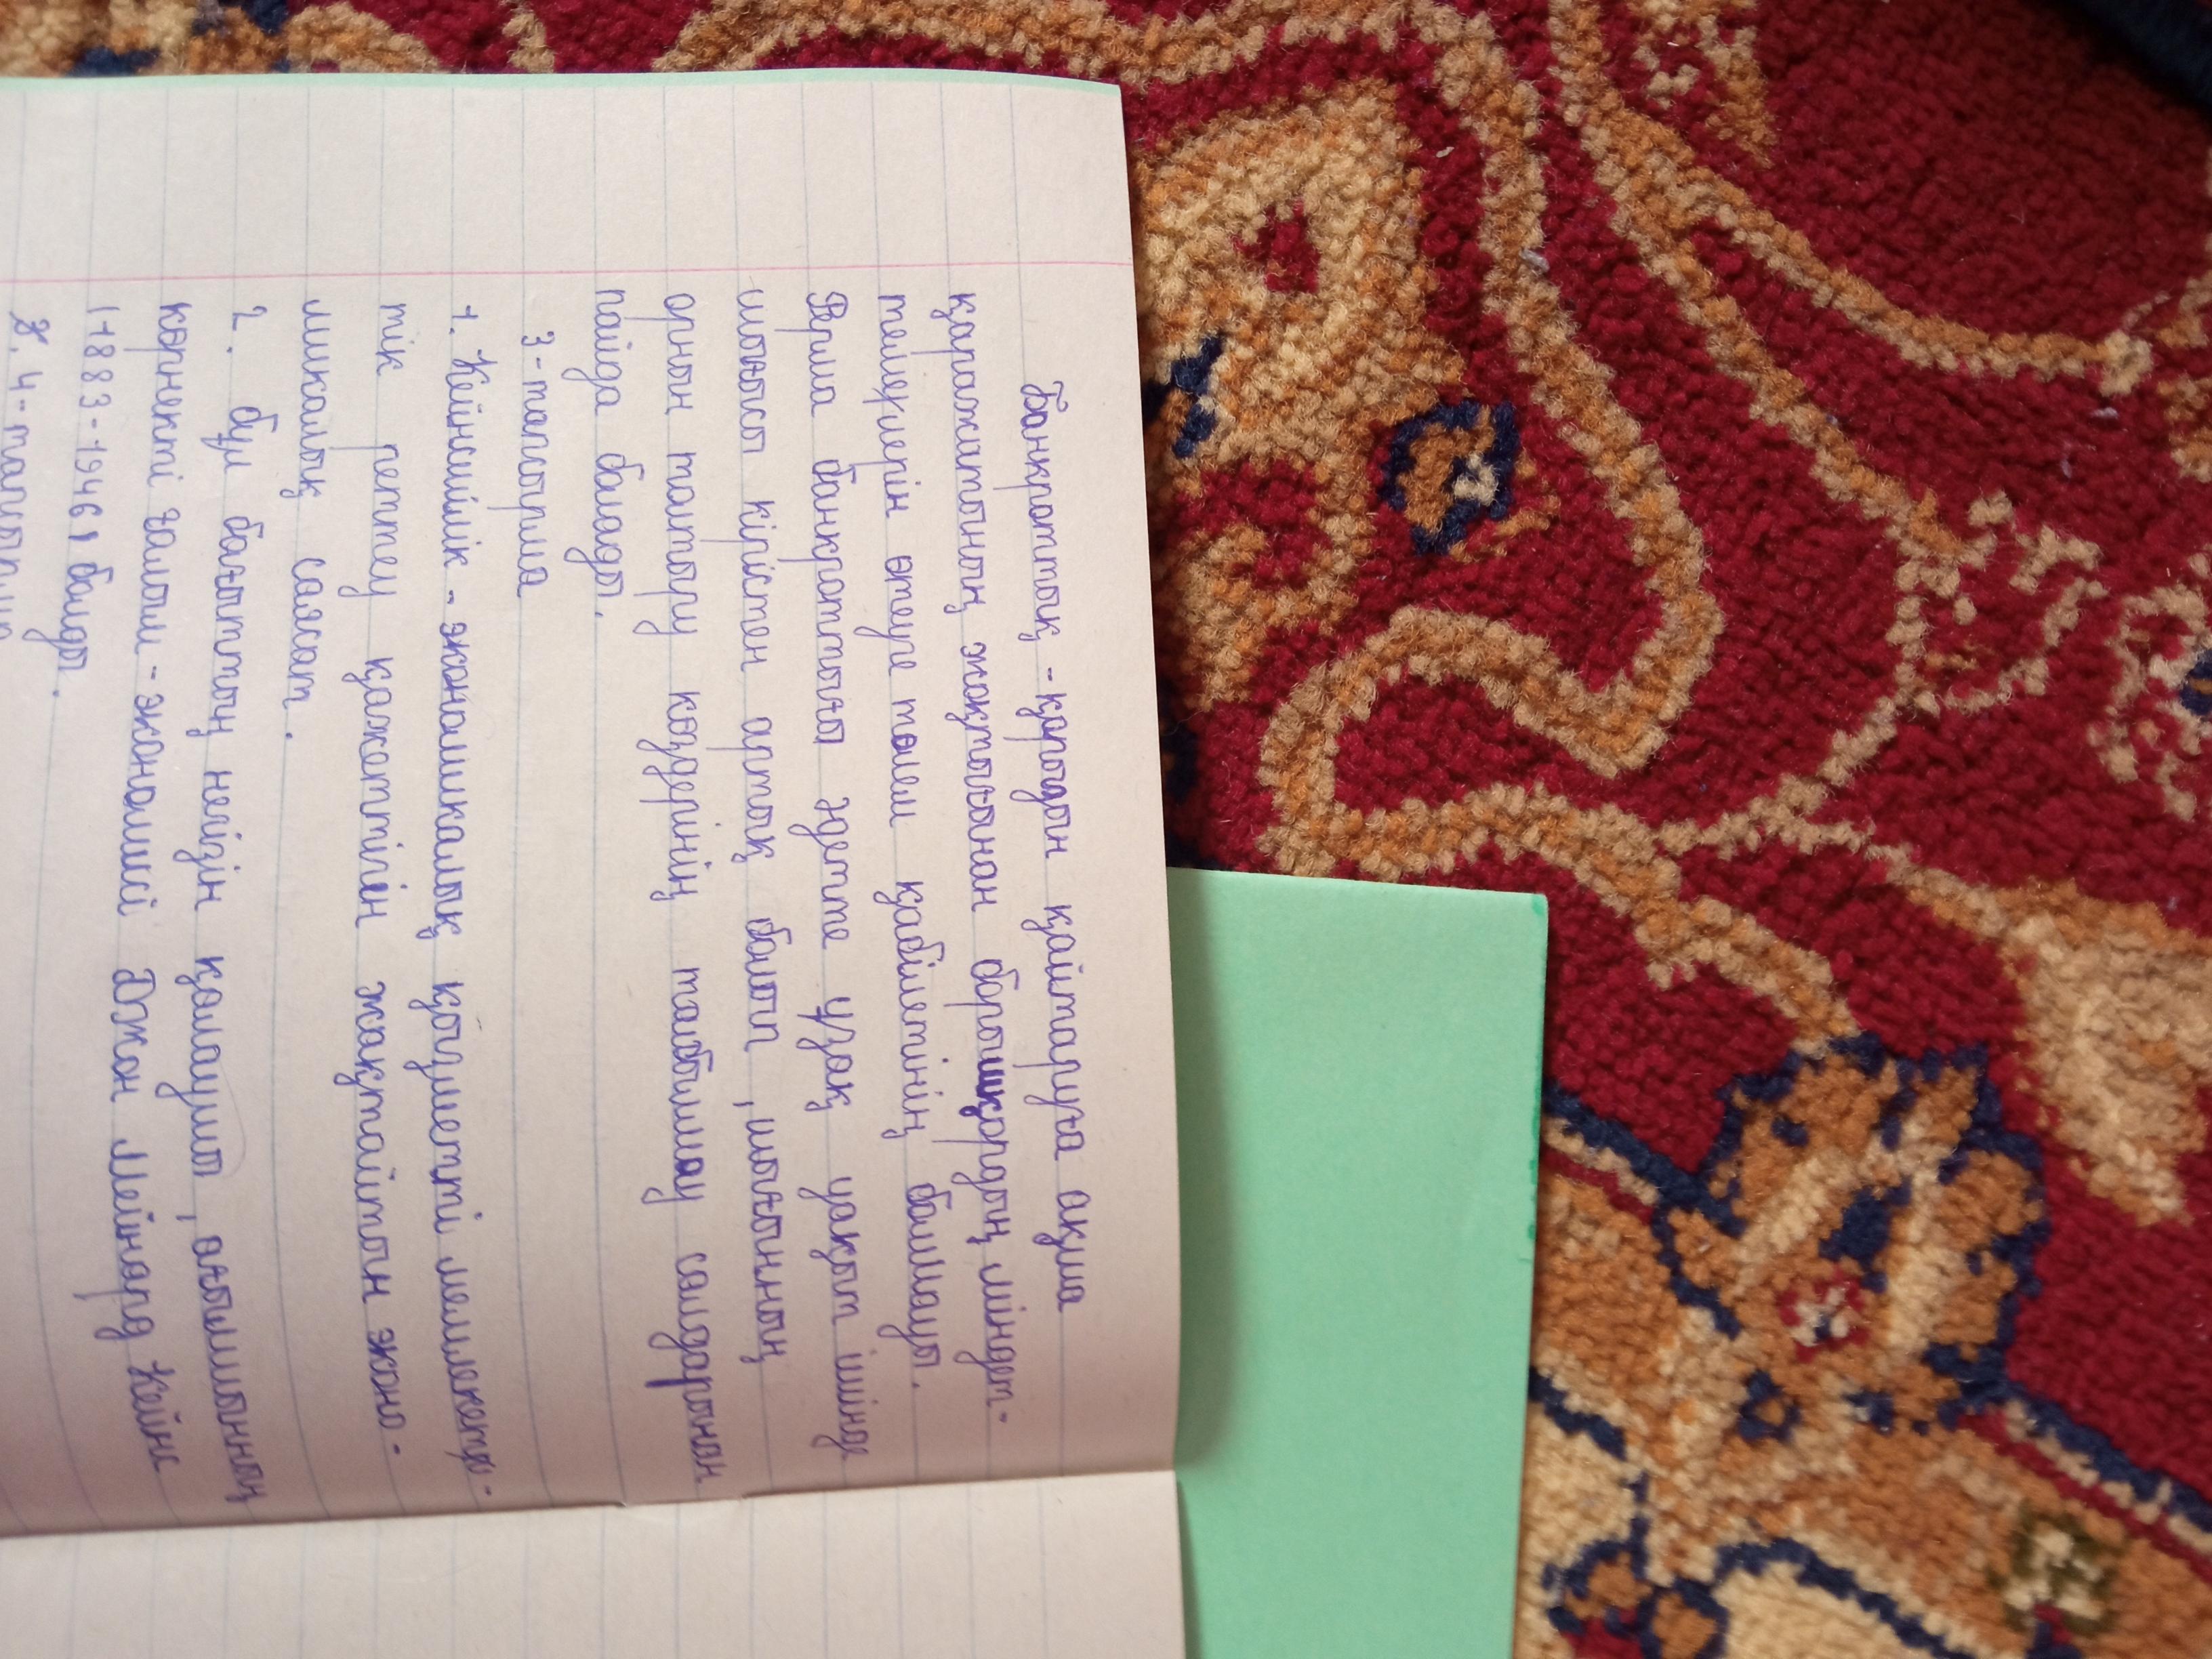 Банкроттық - қарыздын қайтаруға ақша
қаражатының жоқтығынан борышқордың міндет-
темелерін өтеуге төлем қабілетінің болмауы.
Фирма банкроттығы әдетте ұзақ уақыт ішінде
шығысы кірістен артық болып, шығынның
орнын толтыру көздерінің табылмау салдарынан
пайда болады.
3-тапсырма
1. Кейнсшілік - экономикалық қызметті мемлекет-
тік реттеу қажеттігін жақтайтын эконо-
микалық саясат.
2. бұл бағыттың негізін қалаушы, ағылшынның
көрнекті ғалым - экономисі Джон Мейнард Кейнс
1883-1946 болды.
4-тапсырма